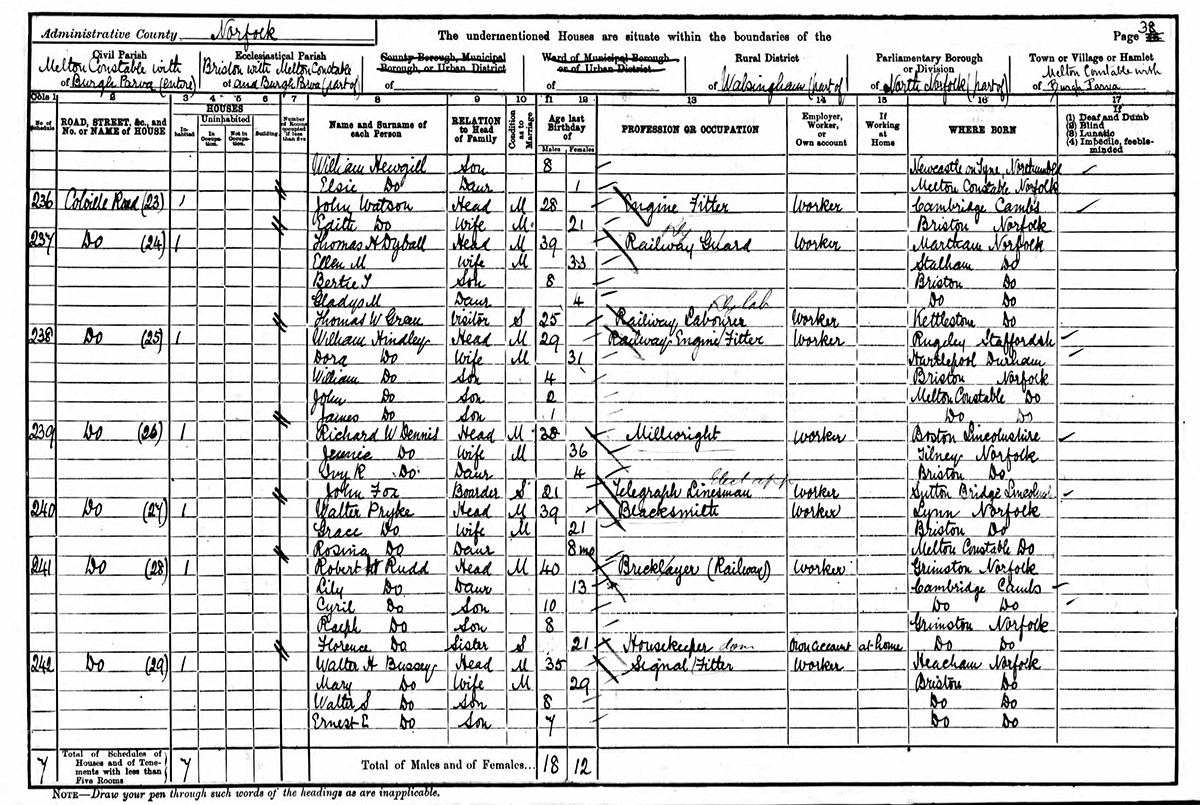 Administrative County Norfolk The undermentioned Houses are situate within the boundaries of the Page 38
Civil Parish Ecclesiastical Parish County Borough, Municipal Borough, or Urban District Ward of Municipal Borough or of Urban District Rural District Parliamentary Borough or Division Town or Village or Hamlet
Melton Constable with Briston with Melton Constable Melton Constable with
of Burgh Parva (entire) of and Burgh Parva (part of) of of of Walsingham (part of) of North Norfolk (part of) of Burgh Parva
Cols 1 2 3 4 5 6 7 8 9 10 11 12 13 14 15 16 17
No. of Schedule ROAD, STREET, &c., and No. or NAME of HOUSE HOUSES Inhabited Uninhabited In Occupation. Not in Occupation. Building. Number of Rooms occupied if less than five Name and Surname of each Person RELATION to Head of Family Condition as to Marriage Age last Birthday of Males Females PROFESSION OR OCCUPATION Employer, Worker, or Own account If Working at Home WHERE BORN If (1) Deaf and Dumb (2) Blind (3) Lunatic (4) Imbecile, feeble-minded
William Hewgill Son 8 Newcastle on Tyne,
Elsie Do Daur 1 Melton Constable Norfolk
236 Colville Road (23) 1 John Watson Head M 28 Engine Fitter Worker Cambridge Cambs
Edith Do Wife M 21 Briston Norfolk
237 Do (24) 1 Thomas H Dyball Head M 39 Railway Guard Worker Martham Norfolk
Ellen M Wife M 33 Stalham Do
Bertie T Son 8 Briston Do
Gladys M Daur 4 Do Do
Thomas W Visitor S 25 Railway Labourer Worker Kettlestone Do
238 Do (25) 1 William Hindley Head M 29 Railway Engine Fitter Worker Rugeley Staffordsh
Dora Do Wife M 31 Hartlepool Durham
William Do Son 4 Briston Norfolk
John Do Son 2 Melton Constable Do
James Do Son 1 Do Do
239 Do (26) 1 Richard W Dennis Head M 38 Millwright Worker Boston Lincolnshire
Jennie Do Wife M 36 Tilney Norfolk
Ivy R Do Daur 4 Briston Do
John Fox Boarder S 21 Telegraph Linesman Worker Sutton Bridge
240 Do (27) 1 Walter Pryke Head M 39 Blacksmith Worker Lynn Norfolk
Grace Do Wife M 21 Briston Do
Rosina Do Daur 8 mo Melton Constable Do
241 Do (28) 1 Robert W Rudd Head M 40 Bricklayer (Railway) Worker Grimston Norfolk
Lily Do Daur 13 Cambridge Cambs
Cyril Do Son 10 Do Do
Ralph Do Son 8 Grimston Norfolk
Florence Do Sister S 21 Housekeeper dom Own account at home Do Do
242 Do (29) 1 Walter H Bussey Head M 35 Signal Fitter Worker Heacham Norfolk
Mary Do Wife M 29 Briston Do
Walter S Do Son 8 Do Do
Ernest E Do Son 7 Do Do
7 Total of Schedules of Houses and of Tenements with less than Five Rooms 7 Total of Males and of Females... 18 12
NOTE—Draw your pen through such words of the headings as are inapplicable.